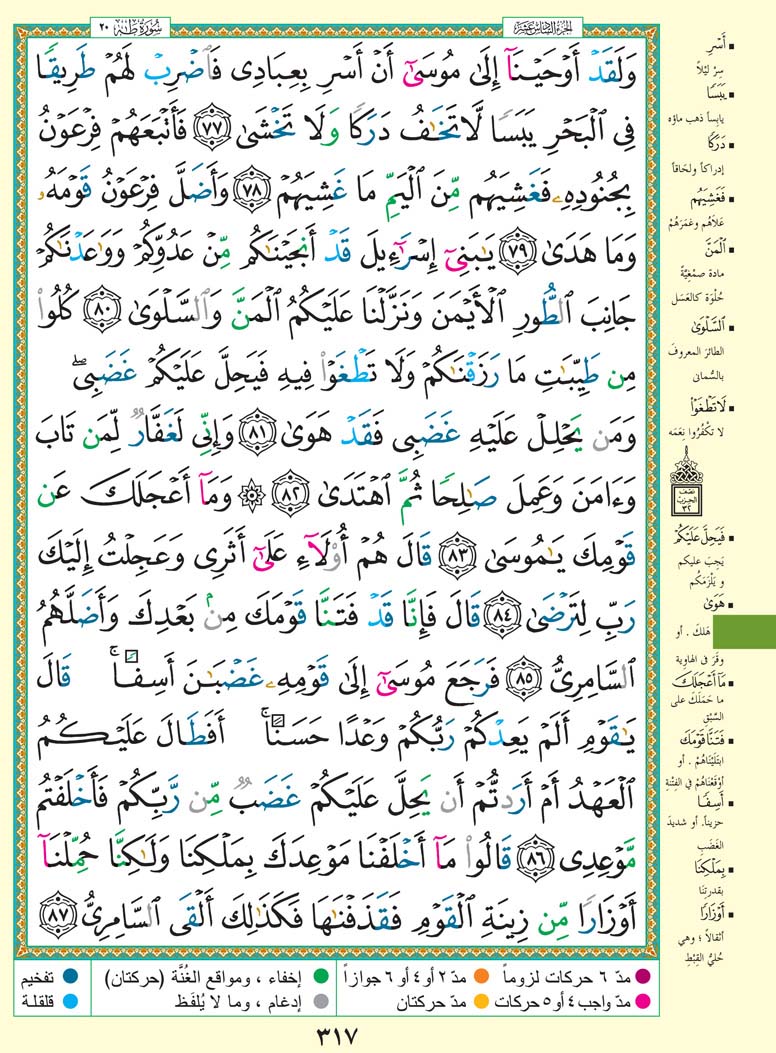 الجزء السادس عشر
سورة طه ٢٠
وَلَقَدْ أَوْحَيْنَآ إِلَىٰ مُوسَىٰٓ أَنْ أَسْرِ بِعِبَادِى فَٱضْرِبْ لَهُمْ طَرِيقًا
فِى ٱلْبَحْرِ يَبَسًا لَّا تَخَٰفُ دَرَكًا وَلَا تَخْشَىٰ ٧٧ فَأَتْبَعَهُمْ فِرْعَوْنُ
بِجُنُودِهِۦ فَغَشِيَهُم مِّنَ ٱلْيَمِّ مَا غَشِيَهُمْ ٧٨ وَأَضَلَّ فِرْعَوْنُ قَوْمَهُۥ
وَمَا هَدَىٰ ٧٩ يَٰبَنِىٓ إِسْرَٰٓءِيلَ قَدْ أَنجَيْنَٰكُم مِّنْ عَدُوِّكُمْ وَوَٰعَدْنَٰكُمْ
جَانِبَ ٱلطُّورِ ٱلْأَيْمَنَ وَنَزَّلْنَا عَلَيْكُمُ ٱلْمَنَّ وَٱلسَّلْوَىٰ ٨٠ كُلُوا۟
مِن طَيِّبَٰتِ مَا رَزَقْنَٰكُمْ وَلَا تَطْغَوْا۟ فِيهِ فَيَحِلَّ عَلَيْكُمْ غَضَبِى ۖ
وَمَن يَحْلِلْ عَلَيْهِ غَضَبِى فَقَدْ هَوَىٰ ٨١ وَإِنِّى لَغَفَّارٌ لِّمَن تَابَ
وَءَامَنَ وَعَمِلَ صَٰلِحًا ثُمَّ ٱهْتَدَىٰ ٨٢ ۞ وَمَآ أَعْجَلَكَ عَن
قَوْمِكَ يَٰمُوسَىٰ ٨٣ قَالَ هُمْ أُو۟لَآءِ عَلَىٰٓ أَثَرِى وَعَجِلْتُ إِلَيْكَ
رَبِّ لِتَرْضَىٰ ٨٤ قَالَ فَإِنَّا قَدْ فَتَنَّا قَوْمَكَ مِنۢ بَعْدِكَ وَأَضَلَّهُمُ
ٱلسَّامِرِىُّ ٨٥ فَرَجَعَ مُوسَىٰٓ إِلَىٰ قَوْمِهِۦ غَضْبَٰنَ أَسِفًا ۚ قَالَ
يَٰقَوْمِ أَلَمْ يَعِدْكُمْ رَبُّكُمْ وَعْدًا حَسَنًا ۚ أَفَطَالَ عَلَيْكُمُ
ٱلْعَهْدُ أَمْ أَرَدتُّمْ أَن يَحِلَّ عَلَيْكُمْ غَضَبٌ مِّن رَّبِّكُمْ فَأَخْلَفْتُم
مَّوْعِدِى ٨٦ قَالُوا۟ مَآ أَخْلَفْنَا مَوْعِدَكَ بِمَلْكِنَا وَلَٰكِنَّا حُمِّلْنَآ
أَوْزَارًا مِّن زِينَةِ ٱلْقَوْمِ فَقَذَفْنَٰهَا فَكَذَٰلِكَ أَلْقَى ٱلسَّامِرِىُّ ٨٧
أَسْرِ
سِرْ لَيْلاً
يَبَسًا
يابساً ذهب ماؤه
دَرَكًا
إدراكاً ولحَاقاً
فَغَشِيَهُم
عَلَاهُم وغمَرَهُمْ
ٱلْمَنَّ
مادة صمْغِيَّة
حُلْوَة كالعَسَل
ٱلسَّلْوَىٰ
الطائرَ المعروفَ
بالسُّمانى
لَا تَطْغَوْا۟
لا تكْفُرُوا نِعَمَه
نصف
الحزب
٣٢
فَيَحِلَّ عَلَيْكُمْ
يَجِبَ عليكم
و يَلْزَمَكُم
هَوَىٰ
هَلكَ . أو
وقَعَ فى الهاوية
مَآ أَعْجَلَكَ
ما حَمَلَكَ على
السَّبْقِ
فَتَنَّا قَوْمَكَ
ابتَلَيْناهُمْ . أو
أوْقَعْناهُمْ فى الفِتْنَةِ
أَسِفًا
حزيناً. أو شديدَ
الغَضَبِ
بِمَلْكِنَا
بقدرتِنا
أَوْزَارًا
أثقالاً ؛ وهي
حُليُّ القِبْطِ
مدّ ٦ حركات لزوماً مدّ ٢ أو ٤ أو ٦ جوازاً إخفاء ، ومواقع الغُنَّة (حركتان) تفخيم
مدّ واجب ٤ أو ٥ حركات مدّ حركتان إدغام ، وما لا يُلفَظ قلقلة
٣١٧